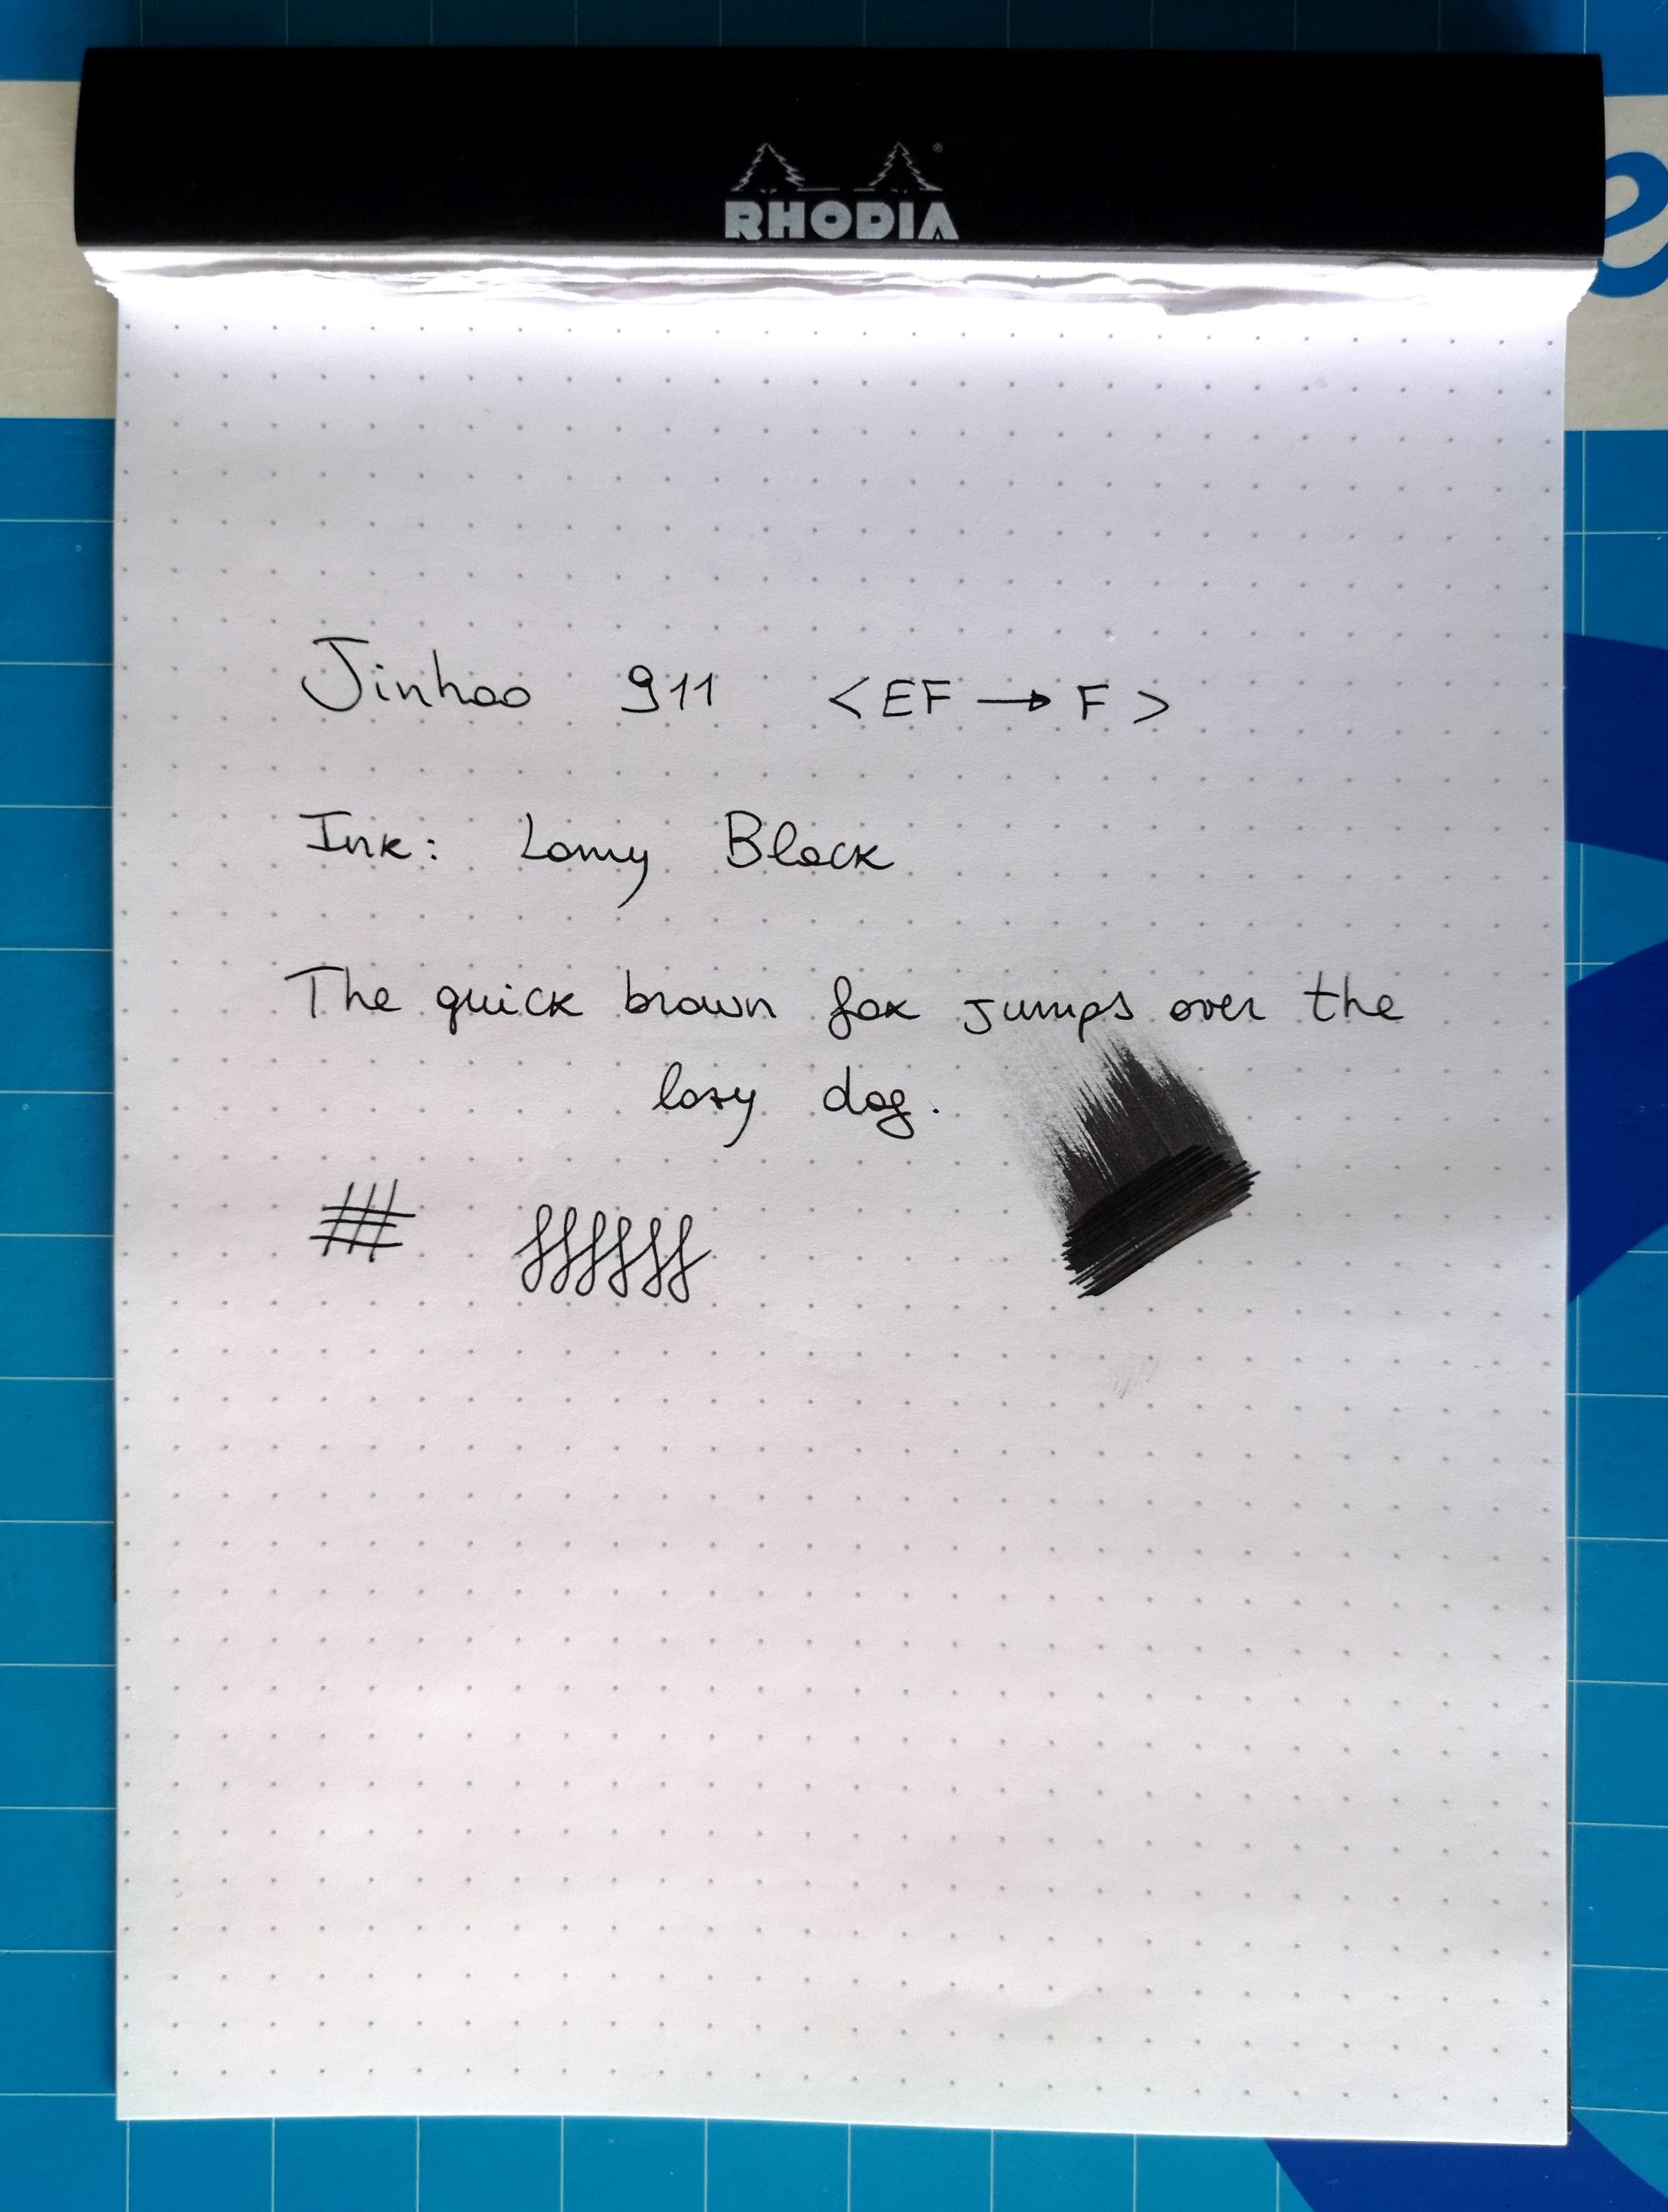 RHODIA
Jinhao 911 <EF → F>
Ink: Lamy Black
The quick brown fox jumps over the
lazy dog.